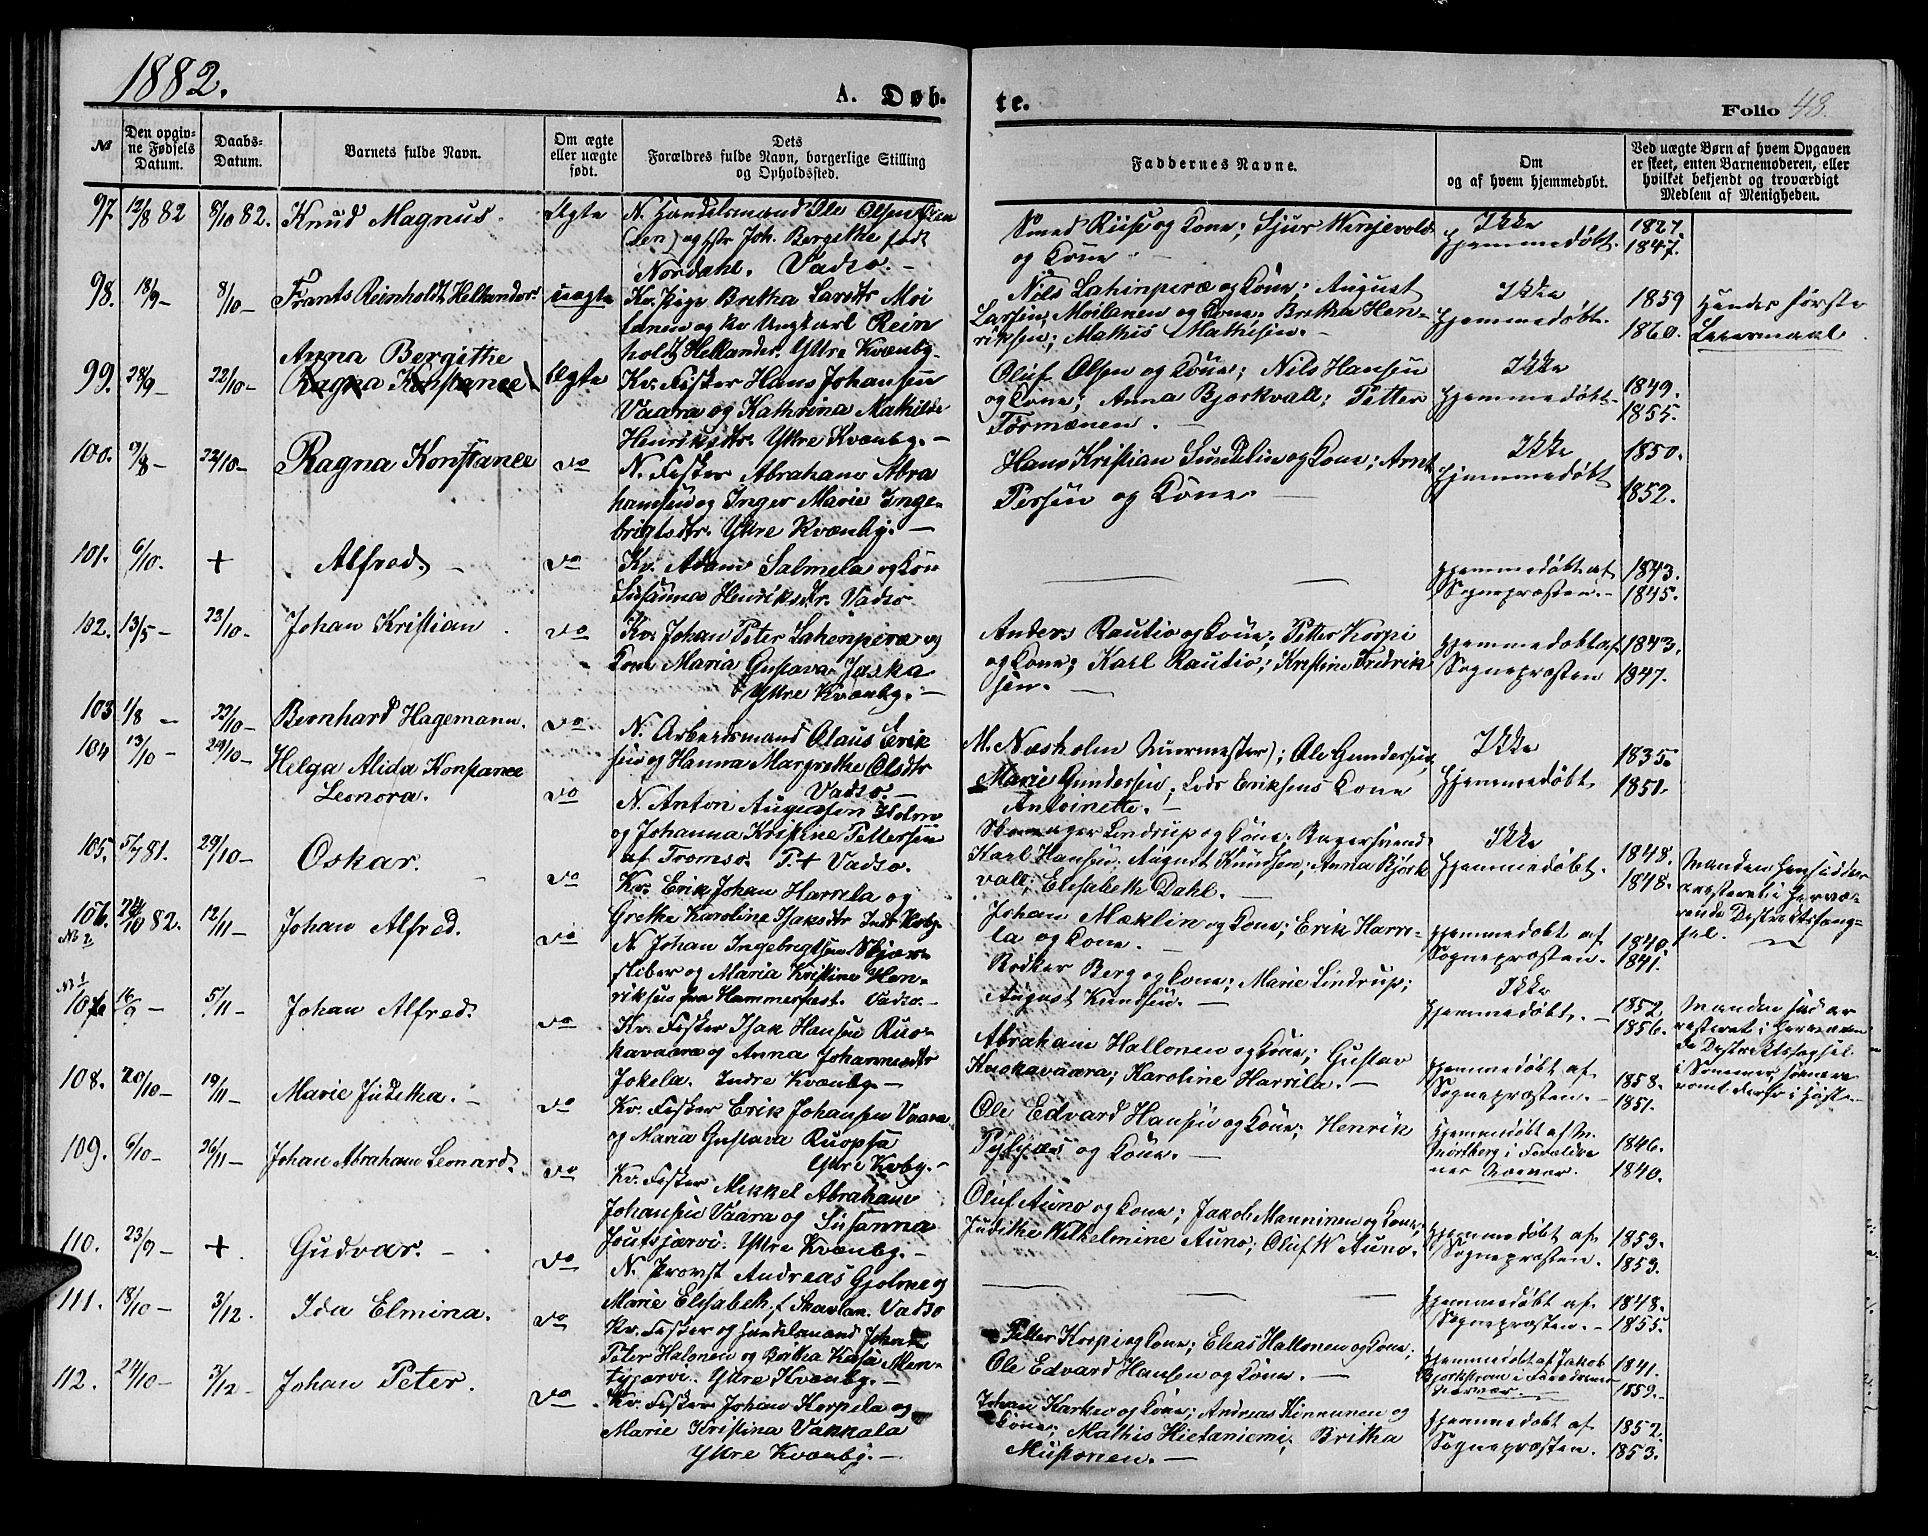 1882.
A. Døb-
te.
Folio 48.
№
Den opgiv-
ne Fødsels
Datum.
Daabs-
Datum.
Barnets fulde Navn.
Om ægte
eller uægte
født.
Dets
Forældres fulde Navn, borgerlige Stilling
og Opholdssted.
Faddernes Navne.
Om
og af hvem hjemmedøbt.
Ved uægte Børn af hvem Opgaven
er skeet, enten Barnemoderen, eller
hvilket bekjendt og troværdigt
Medlem af Menigheden.
97. 12/8 82 8/10 82. Knud Magnus. Ægte
N. Handelsmand Ole Olsen
og Joh. Bergithe født
Nordahl. Vadsø.
Smed Riise og Kone; Sjur Wenjevold
og Kone.
Ikke
hjemmedøbt.
1827.
1847.
98. 18/9 – 8/10 – Frants Reinholdt Hellander uægte
Kv. Pige Britha Larsdtr Moi
lanen og Kv. Ungkarl Rein
holdt Hellander. Yttre Kvænby.
Nils Lahinperæ og Kone; August
Larsen; Moilanen og Kone. Britha Hen-
riksen; Mathis Mathisen.
Ikke
hjemmedøbt.
1859
1860.
Hendes første
Leiermaal.
99. 28/9 – 22/10 – Anna Bergithe
Ragna Konstance Ægte
Kv. Fisker Hans Johansen
Vaara og Kathrina Mathilde
Henriksdtr. Yttre Kvænby. –
Oluf Olsen og Kone; Nils Hansen
og Kone; Anna Bjørkvall; Petter
Tørmænen. –
Ikke
hjemmedøbt
1849.
1855.
100. 9/8 – 22/10 – Ragna Konstance do
N. Fisker Abraham Abra
hamsen og Inger Marie Inge-
brigtsdtr. Yttre Kvænby. –
Hans Kristian Sundelin og Kone; Arnt
Persen og Kone. –
Ikke
hjemmedøbt
1850.
1852.
101. 6/10. + Alfred. – do
Kv. Adam Salmela og Kon
Susanna Henriksdtr. Vadsø
hjemmedøbt af
Sognepræsten. –
1843.
1845.
102. 13/5 – 22/10 – Johan Kristian. do
Kv. Johan Peter Lahenperæ og
Kone Maria Gustava Jaska
Yttre Kvænby. –
Anders Rautio og Kone; Petter Korpi
og Kone; Karl Rautio; Kristine Fredrik
sen. –
hjemmedøbt af
Sognepræsten
1843.
1847.
103 1/8 – 22/10 – Bernhard Hagemann. do
N. Arbeidsmand Olaus Erik
sen og Hanna Margrethe Olsdtr
Vadsø. –
M. Næsholm Murmester); Ole Gundersen,
Marie Gundersen; Lods Eriksens Kone
Antoinette. –
Ikke
hjemmedøbt.
1835.
1851.
104 13/10 – 29/10 – Helga Alida Konstance
Leonora. do
N. Anton Holm
og Johanna Kristine Pettersen
af Tromsø. P.t Vadsø.
Lindrup og Kone; Bagersvend
Karl Hansen; August Knudsen; Anna Bjørk
vall; Elisabeth Dahl. –
Ikke
hjemmedøbt.
1848.
1848.
105. 5/7 81. 29/10 – Oskar. – do
Kv. Erik Johan Harrila og
Grethe Karoline Isaksdtr Indr Kvby.
Johan Mæklin og Kone; Erik Harri-
la og Kone. –
hjemmedøbt af
Sognepræsten.
1840.
1841.
Manden hensidder
arresteret i hervæ-
rende Distriktsfæng-
sel.
106. 24/10 82. 12/11 – Johan Alfred. do
No 2
N. Johan Ingebregtsen Skjær-
sliber og Maria Kristine Hen-
riksen fra Hammerfest. Vadsø. –
Bødker Berg og Kone; Marie Lindrup;
August Knudsen. –
Ikke
hjemmedøbt. –
1852.
1856.
No 1
107. 16/9 – 5/11 – Johan Alfred. do
Kv. Fisker Isak Hansen Ruo-
kavaara og Anna Johannesdtr
Jokela. Indre Kvænby. –
Abraham Hallonen og Kone; Gustav
Kuokavaara; Karoline Harrila. –
hjemmedøbt af
Sognepræsten. –
1858.
1851.
Manden sad ar
resteret i herværen
de Distriktsfængsel
i Sommer
108. 20/10 – 19/11 – Marie Juditha. – do
Kv. Fisker Erik Johansen Vaara
og Maria Gustava Ruopsa
Yttre Kvby. –
Ole Edvard Hansen og Kone; Henrik
og Kone. –
hjemmedøbt af M.
i Forældre
nes Nærvær.
1846.
1840.
109. 6/10 – 26/11 – Johan Abraham Leonard. do
Kv. Fisker Mikkel Abraham
Johansen Vaara og Susanna
Joutsjærvi. Yttre Kvænby. –
Oluf Auno og Kone; Jakob Manninen og Kone;
Judithe Wilhelmine Auno; Oluf W Auno.
hjemmedøbt af
Sognepræsten.
1853.
1853.
110. 23/9 – + Gudvar. – do
N. Provst Andreas Gjølme og
Marie Elisabeth f. Skavlan. Vadsø
hjemmedøbt af
Sognepræsten. –
1848.
1855.
111. 18/10 – 3/12. Ida Elmina. do
Kv. Fisker og Handelsmand Johan
Peter Halonen og Britha Kaisa Men-
tyjærvi. Yttre Kvænby. –
Petter Korpi og Kone; Elias Hallonen og Kone;
Ole Edvard Hansen og Kone. –
hjemmedøbt af Jakob
Bjørkstrøm i Forældrenes
Nærvær. –
1841.
1859.
112. 24/10 – 3/12 – Johan Peter. do
Kv. Fisker Johan Korpela og
Marie Kristina Vakkala
Yttre Kvænby. –
Johan Karken og Kone; Andreas Kinnunen og
Kone; Mathis Hietaniemi; Britha
Mustonen. –
hjemmedøbt af
Sognepræsten.
1852.
1853.